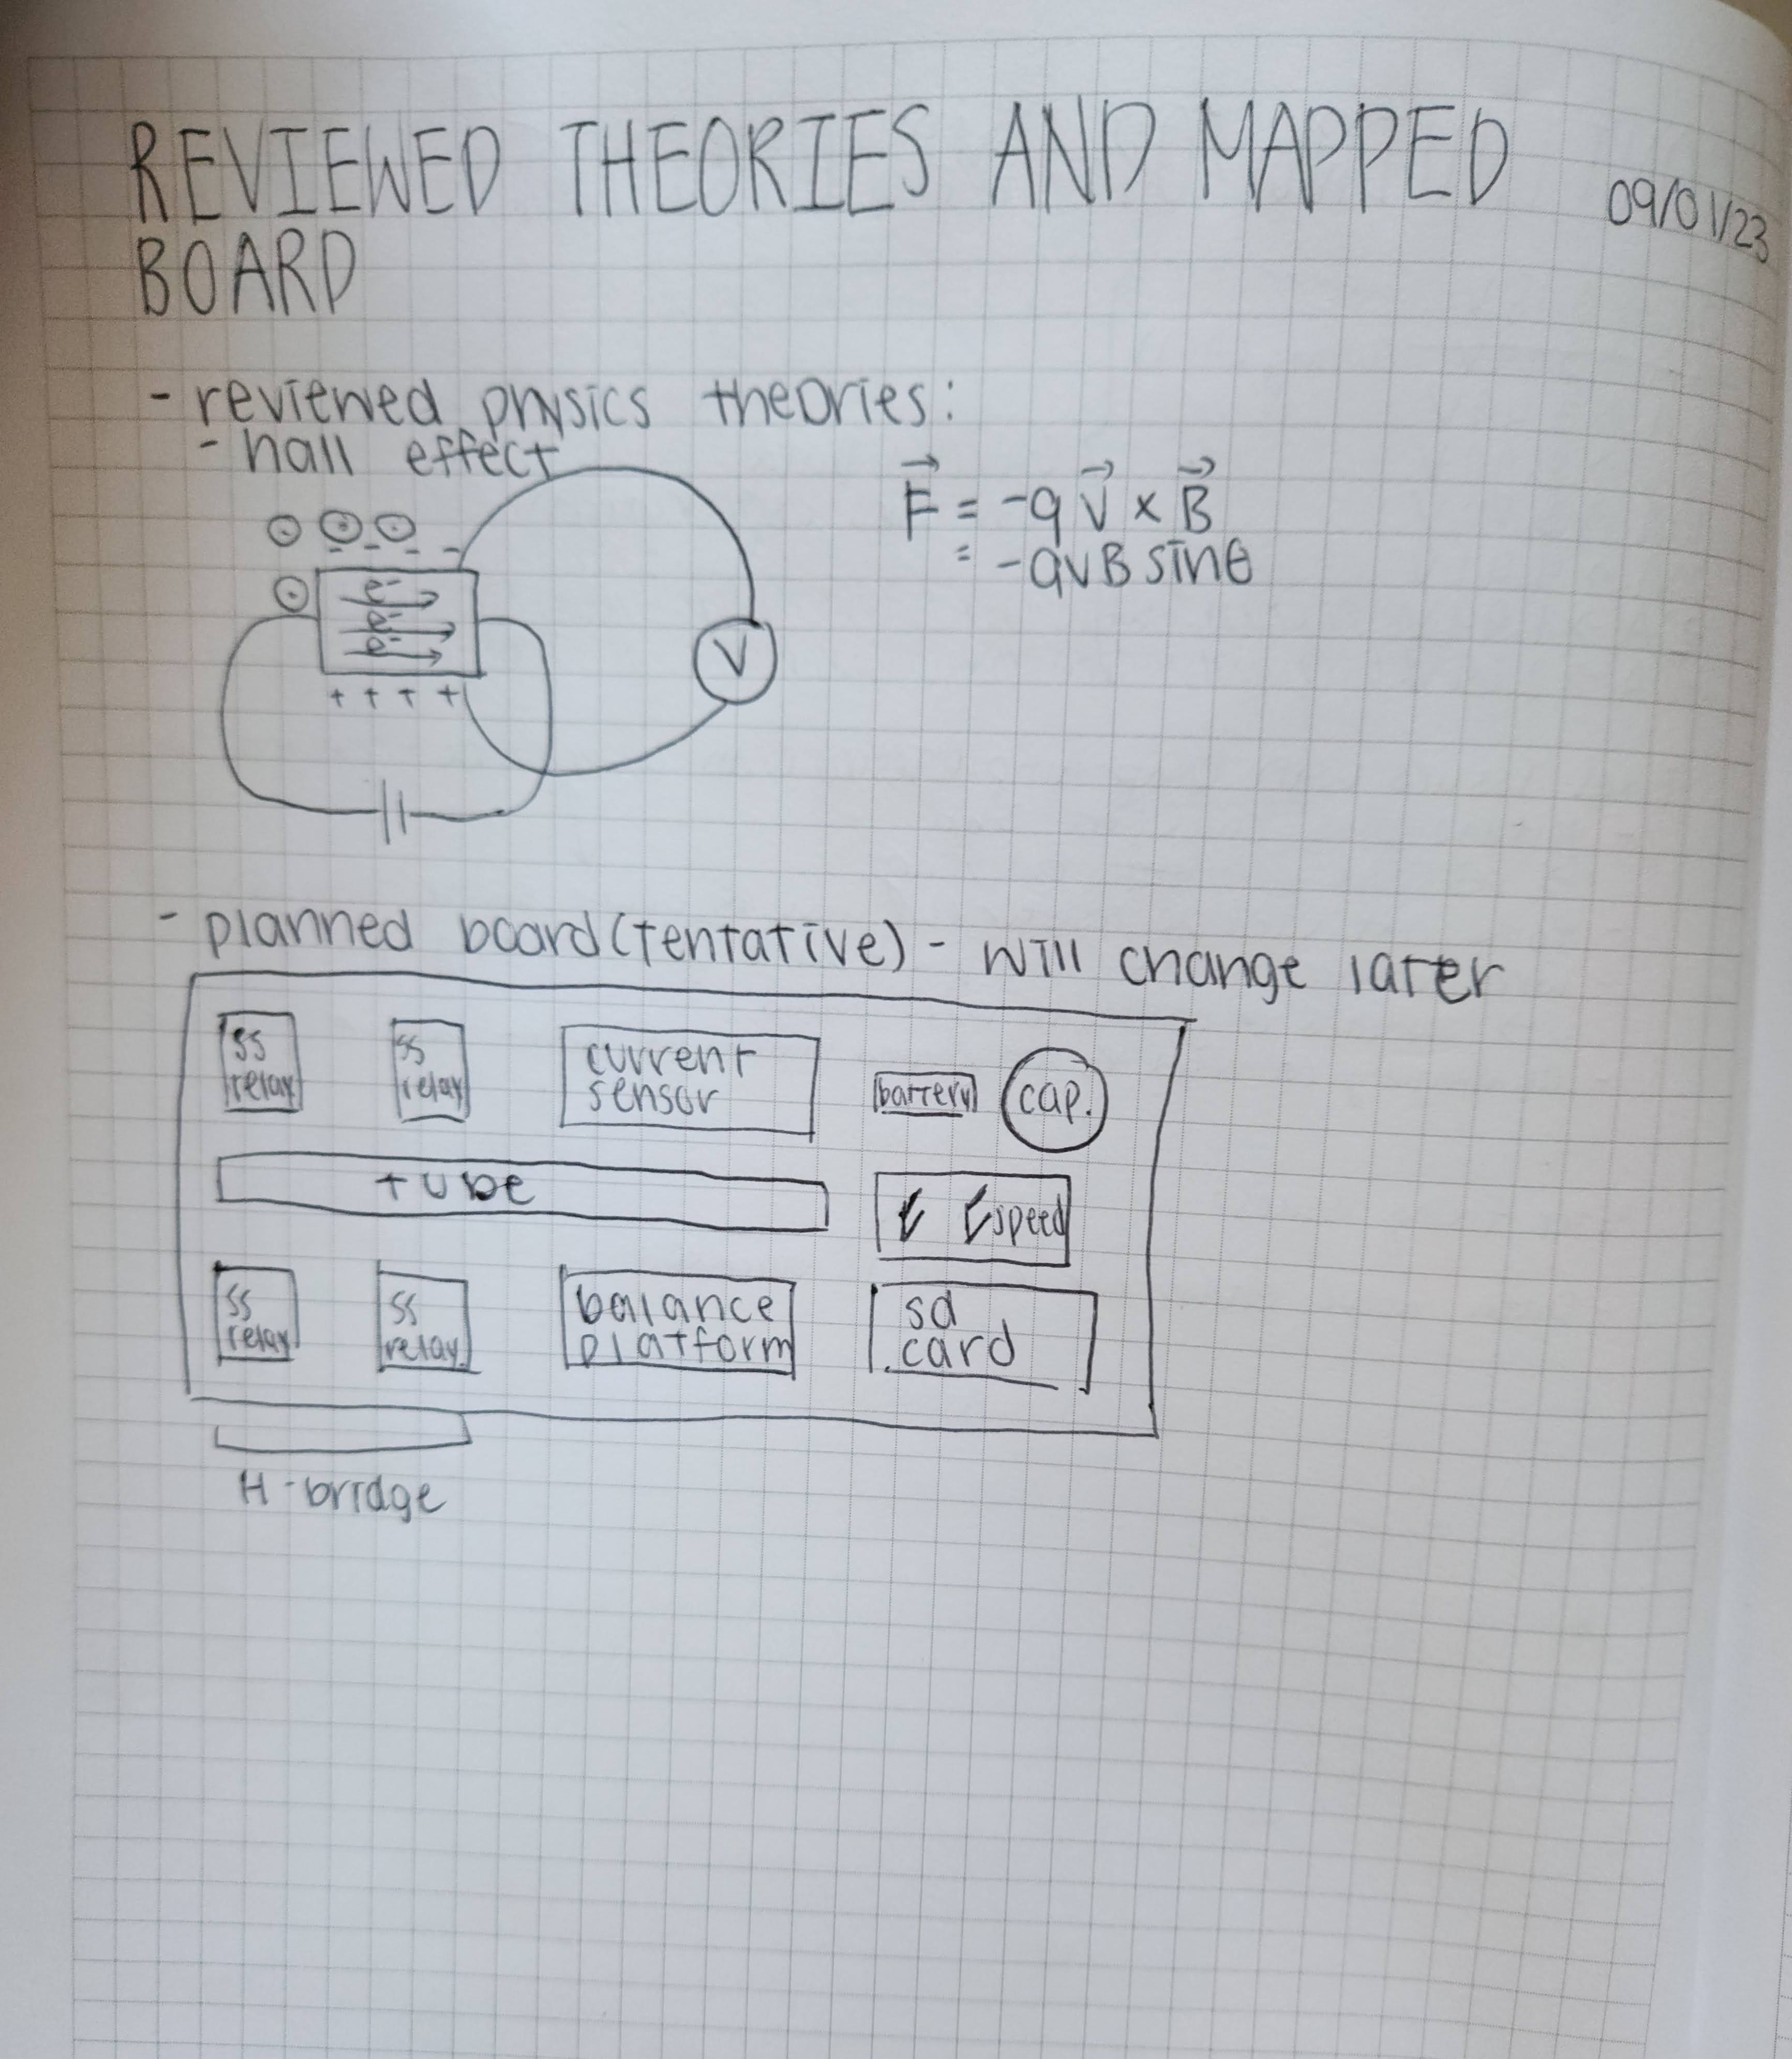 REVIEWED THEORIES AND MAPPED
BOARD
09/01/23
- reviewed physics theories:
- hall effect
F = -qV × B
= -qvB sinθ
- - - -
e- 
e-
e-
+ + + +
V
- planned board (tentative) - will change later
ss
relay
ss
relay
current
sensor
battery
cap.
tube
speed
ss
relay
ss
relay
balance
platform
sd
card
H-bridge